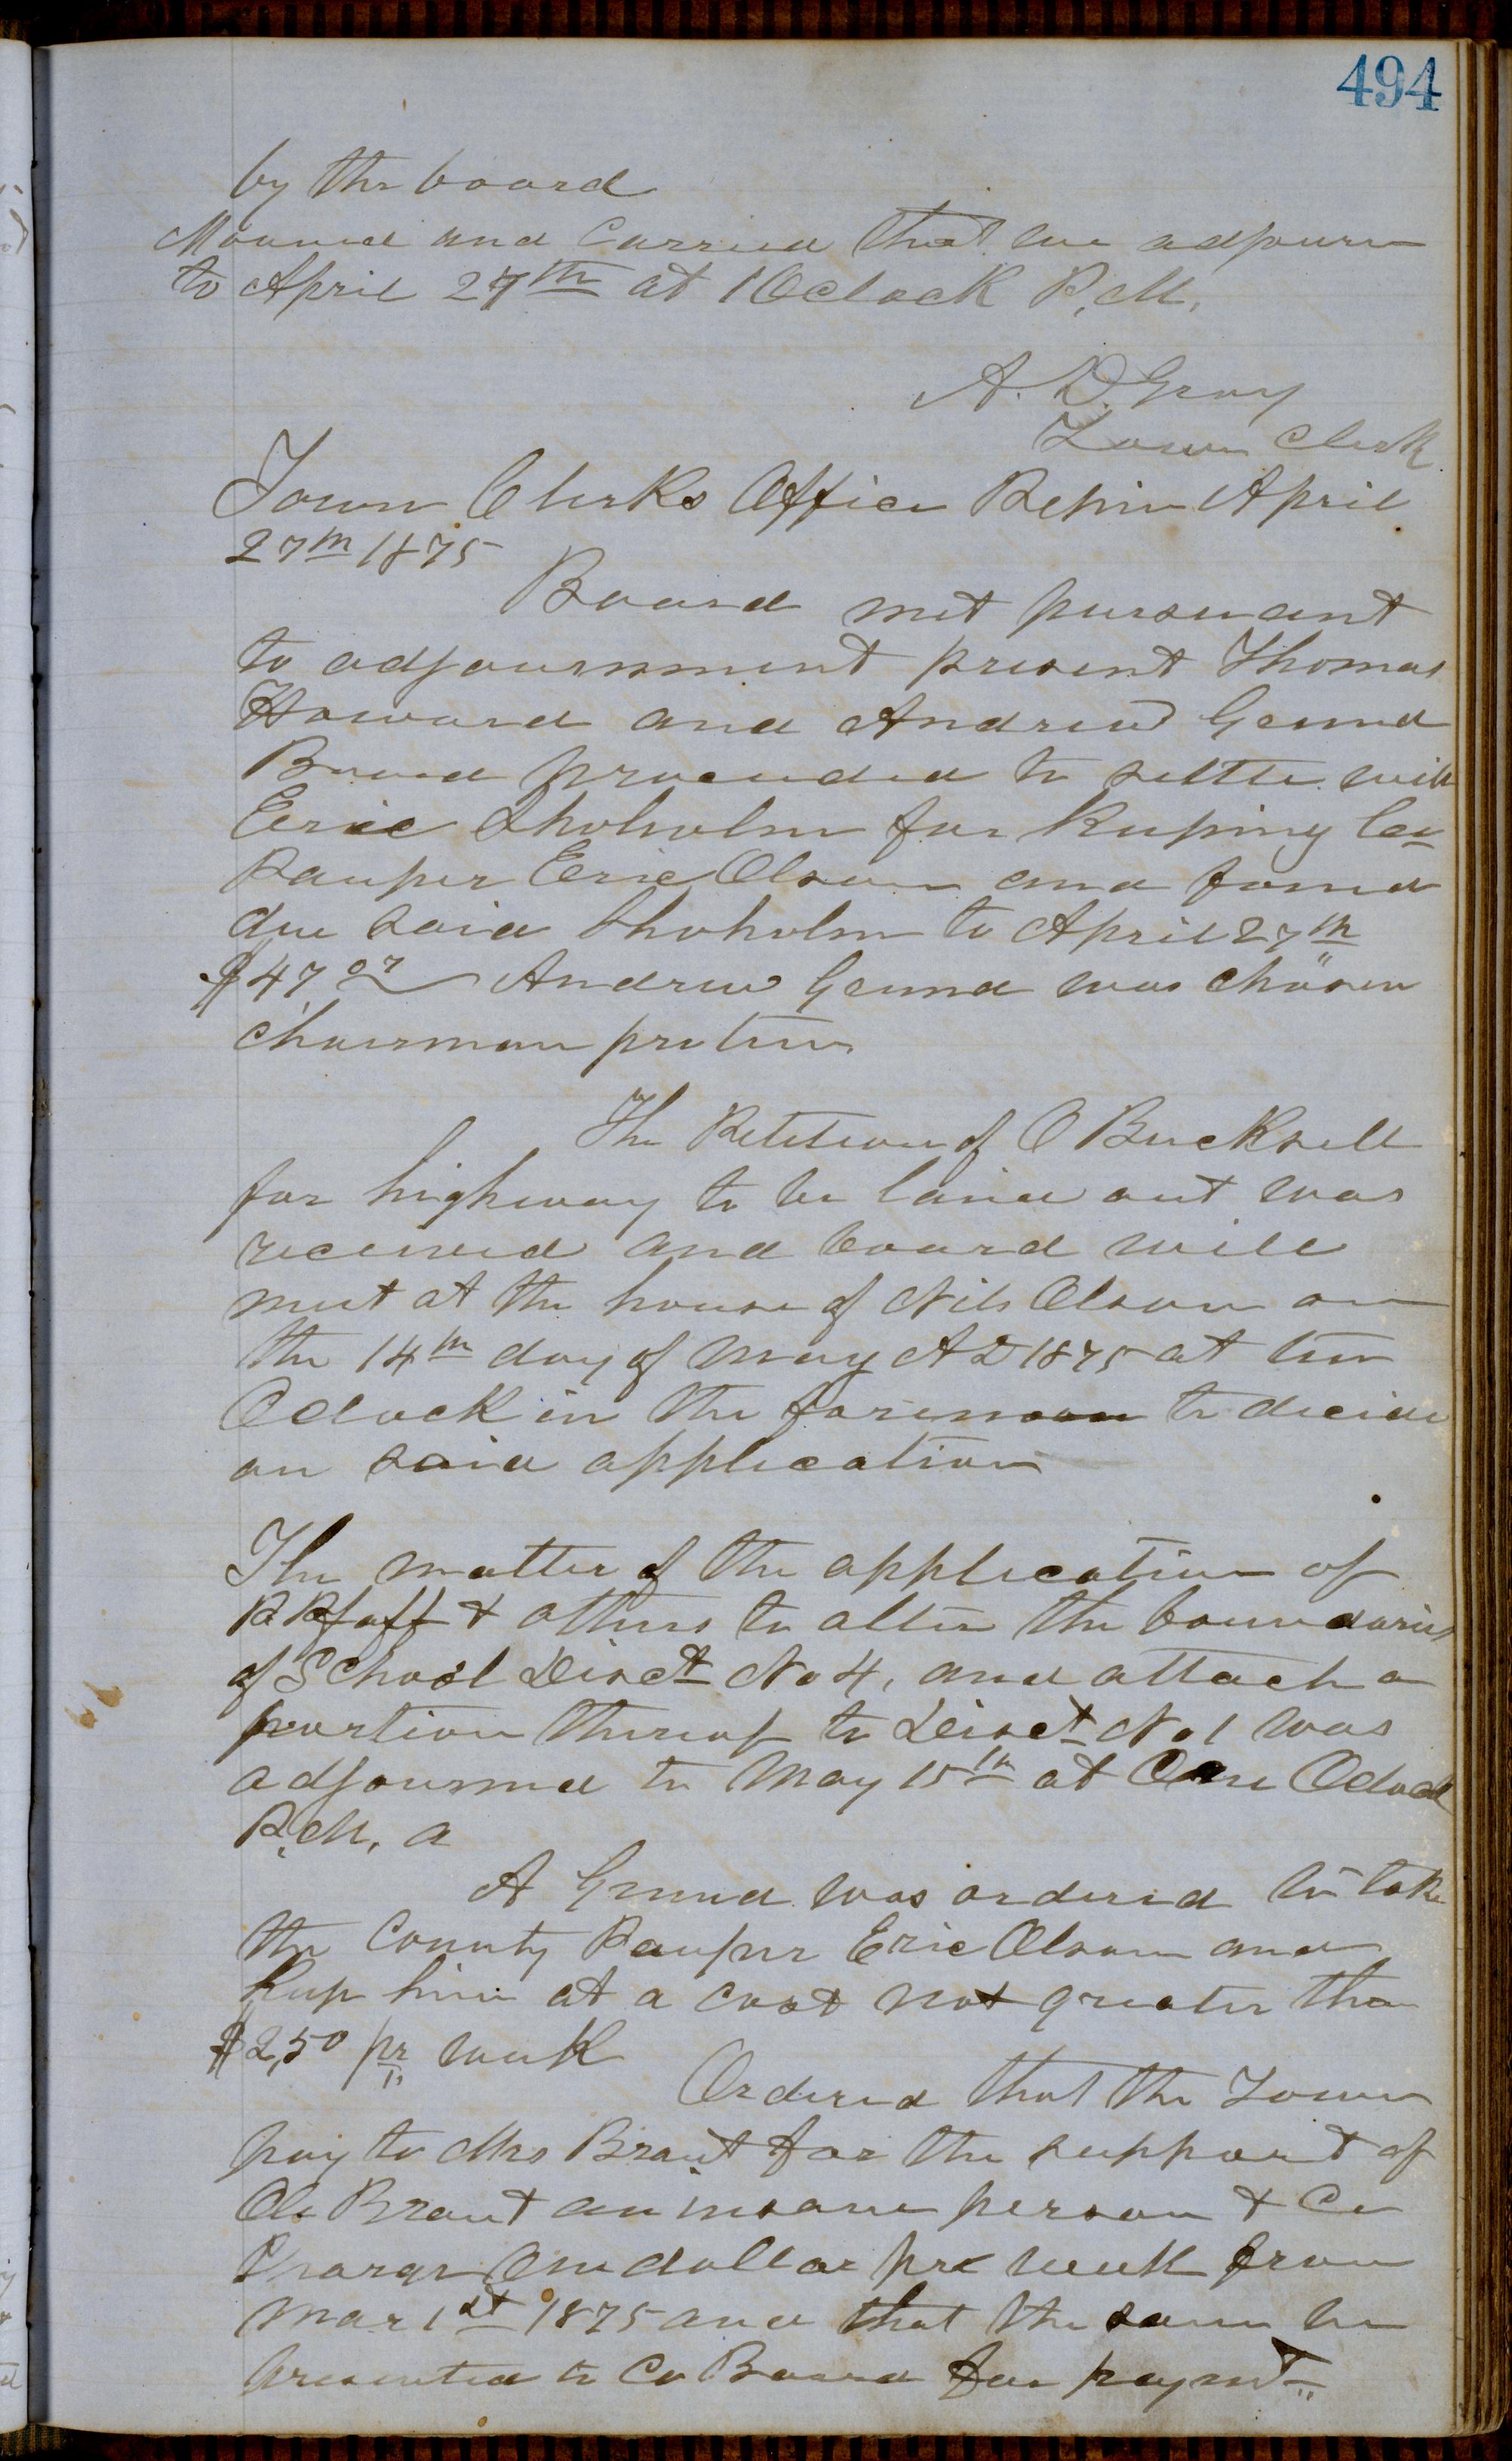 494
by the board
Mooved and Carried that we adjourn
to April 27th at 1 Oclock P.M.
A. D. Gray
Town Clerk
Town Clerks Office Pepin April
27th 1875
Board met pursuant
to adjournment present Thomas
Howard and Andrew Genna
Board proceeded to settle with
Eric Shoholm for Keeping Co
Pauper Eric Olson and found
due said Shoholm to April 27th
$47 07 Andrew Genna was chosen
chairman protem
The Petition of O Bucksell
for highway to be laied out was
received and board will
meet at the house of Nils Olson on
the 14th day of May AD 1875 at ten
Oclock in the forenoon to decide
on said application
The matter of the application of
P. Pfaff & others to alter the boundaries
of School Disct No 4, and attach a
portion thereof to Disct No 1 was
adjourned to May 15th at One Oclock
P.M. a
A was ordered to take
the County Pauper Eric Olson and
Keep him at a cost not greater than
$2,50 pr week
Ordered that the Town
pay to Mrs Brant for the support of
Ole Brant an insane person & Co
Charge One dollar pr week from
Mar 1st 1875 and that the same be
presented to Co Board for paymt